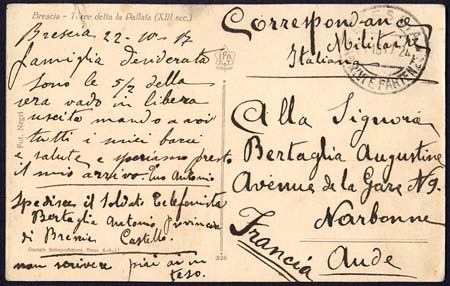 Brescia - Torre detta la Pallata (XIII sec.)
Brescia 22-10-17
famiglia desiderata
sono le 5/2 della
sera vado in libera
uscita mando a voi
tutti i miei baci
e salute e speriamo presto
il mio arrivo. Tuo Antonio
Spedisce il soldato Telefonista
Bertaglia Antonio Provincia
di Brescia Castello.
non scrivere più
Fot. Negri
326
Correspondanza
Militare
Italiana
Alla Signora
Bertaglia Augustine
Avenue de la Gare N9.
Narbonne
Aude
Francia